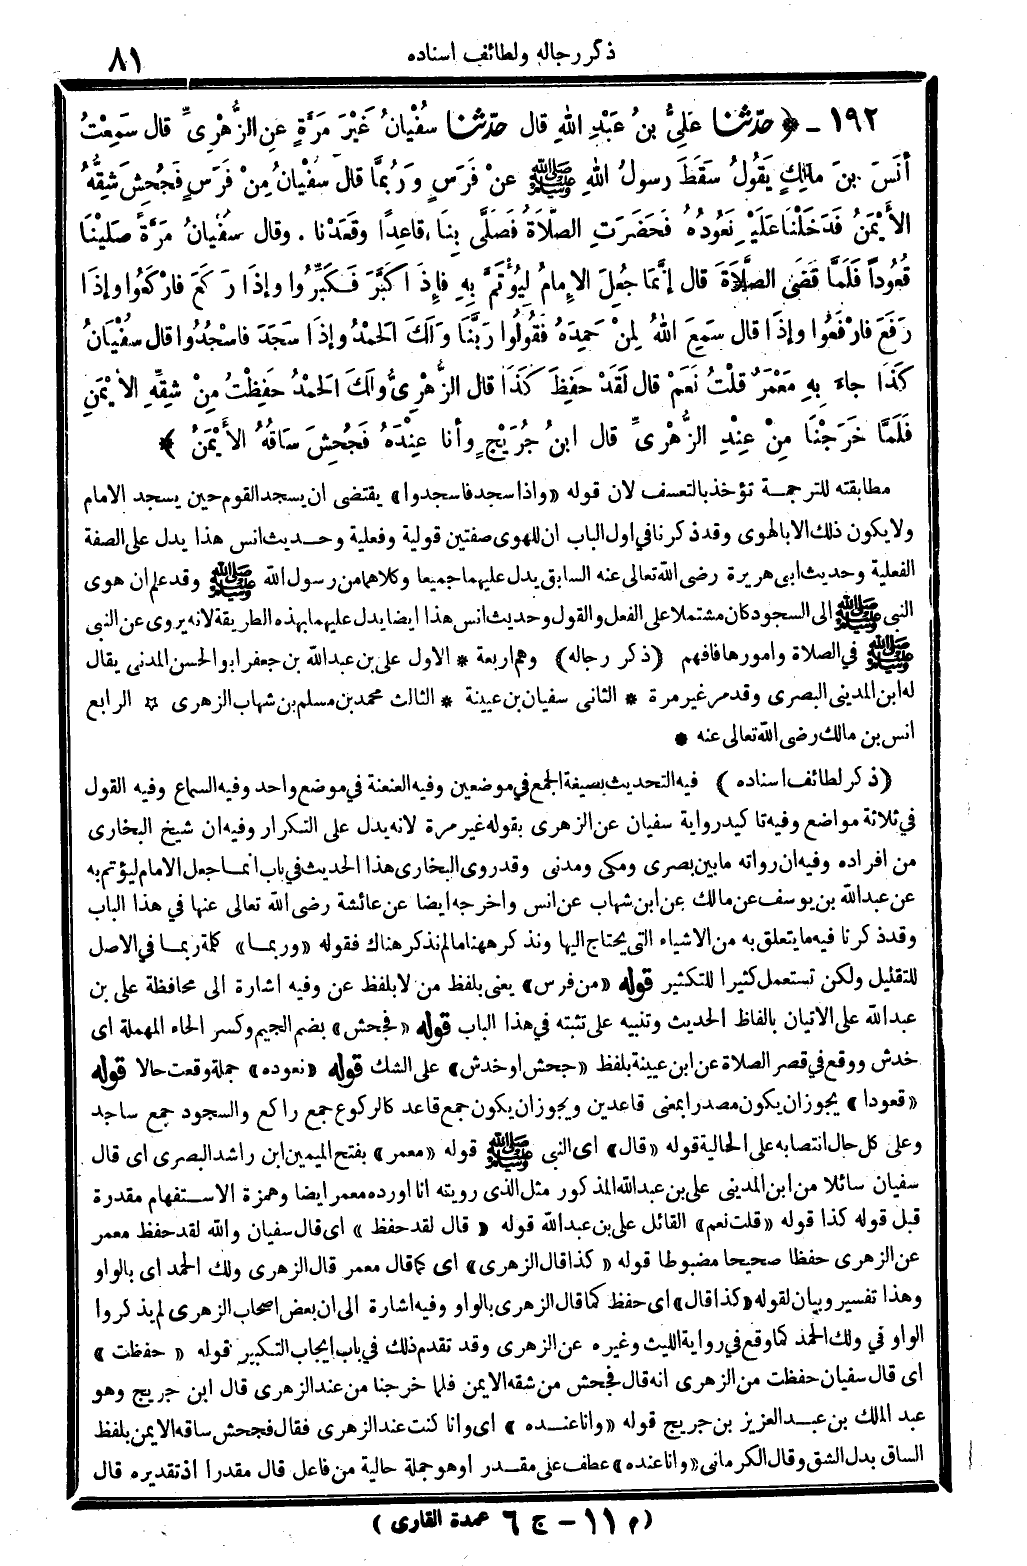 ذكر رجاله ولطائف اسناده
٨١
١٩٢ ـ ﴿ حَدَّثَنَا عَلِيُّ بنُ عَبْدِ اللهِ قال حَدَّثَنَا سُفْيَانُ غَيْرَ مَرَّةٍ عنِ الزُّهْرِىِّ قال سَمِعْتُ
أنَسَ بنَ مالِكٍ يَقُولُ سَقَطَ رسولُ اللهِ ﷺ عنْ فَرَسٍ وَرُبمَّا قال سُفْيَانُ مِنْ فَرَسٍ فَجُحِشَ شِقُّهُ
الأَيْمَنُ فَدَخَلْنَا عَلَيْهِ نَعُودُهُ فَحَضَرَتِ الصَّلاَةُ فَصَلَّى بِنَا قاعِدًا وقَعَدْنا . وقال سُفْيانُ مَرَّةً صَلَيْنَا
قُعُوداً فَلَمَّا قَضَى الصَّلاَةَ قال إنَّمَا جُعِلَ الإِمامُ لِيُؤْتَمَّ بِهِ فإِذَا كَبَّرَ فَكَبِّرُوا وإذَا رَكَعَ فارْكَعُوا وإذَا
رَفَعَ فارْفَعُوا وإذَا قال سَمِعَ اللهُ لِمنْ حَمِدَهُ فَقُولُوا رَبَّنَا وَلَكَ الحَمْدُ وإذَا سَجَدَ فاسْجُدُوا قال سُفْيَانُ
كَذَا جاءَ بِهِ مَعْمَرٌ قلْتُ نَعَمْ قال لَقَدْ حَفِظَ كَذَا قال الزُّهْرِيُّ ولَكَ الحَمْدُ حَفِظْتُ مِنْ شِقِّهِ الأَيْمَنِ
فَلَمَّا خَرَجْنَا مِنْ عِنْدِ الزُّهْرِىِّ قال ابنُ جُرَيْجٍ وأنا عِنْدَهُ فَجُحِشَ سَاقُهُ الأَيْمَنُ ﴾
مطابقته للترجمة تؤخذ بالتعسف لان قوله «واذا سجد فاسجدوا» يقتضى ان يسجد القوم حين يسجد الامام
ولا يكون ذلك الا بالهوى وقد ذكرنا في اول الباب ان للهوى صفتين قولية وفعلية وحديث انس هذا يدل على الصفة
الفعلية وحديث ابى هريرة رضى الله تعالى عنه السابق يدل عليهما جميعا وكلاهما من رسول الله ﷺ وقد علم ان هوى
النبى ﷺ الى السجود كان مشتملا على الفعل والقول وحديث انس هذا ايضا يدل عليهما بهذه الطريقة لانه يروى عن النبى
ﷺ في الصلاة وامورها فافهم (ذكر رجاله) وهم اربعة * الاول على بن عبدالله بن جعفر ابو الحسن المدنى يقال
له ابن المدينى البصرى وقد مر غير مرة * الثانى سفيان بن عيينة * الثالث محمد بن مسلم بن شهاب الزهرى ☆ الرابع
انس بن مالك رضى الله تعالى عنه *
(ذكر لطائف اسناده) فيه التحديث بصيغة الجمع في موضعين وفيه العنعنة في موضع واحد وفيه السماع وفيه القول
في ثلاثة مواضع وفيه تاكيد رواية سفيان عن الزهرى بقوله غير مرة لانه يدل على التكرار وفيه ان شيخ البخارى
من افراده وفيه ان رواته ما بين بصرى ومكى ومدنى وقد روى البخارى هذا الحديث في باب انما جعل الامام ليؤتم به
عن عبدالله بن يوسف عن مالك عن ابن شهاب عن انس واخرجه ايضا عن عائشة رضى الله تعالى عنها في هذا الباب
وقد ذكرنا فيه ما يتعلق به من الاشياء التى يحتاج اليها ونذكر ههنا مالم نذكر هناك فقوله «وربما» كلمة ربما في الاصل
للتقليل ولكن تستعمل كثيرا للتكثير قوله «من فرس» يعنى بلفظ من لا بلفظ عن وفيه اشارة الى محافظة على بن
عبدالله على الاتيان بالفاظ الحديث وتنبيه على تثبته في هذا الباب قوله «فجحش» بضم الجيم وكسر الحاء المهملة اى
خدش ووقع في قصر الصلاة عن ابن عيينة بلفظ «جحش او خدش» على الشك قوله «نعوده» جملة وقعت حالا قوله
«قعودا» يجوز ان يكون مصدرا بمعنى قاعدين ويجوز ان يكون جمع قاعد كالركوع جمع راكع والسجود جمع ساجد
وعلى كل حال انتصابه على الحالية قوله «قال» اى النبى ﷺ قوله «معمر» بفتح الميمين ابن راشد البصرى اى قال
سفيان سائلا من ابن المدينى على بن عبدالله المذكور مثل الذى رويته انا اورده معمر ايضا وهمزة الاستفهام مقدرة
قبل قوله كذا قوله «قلت نعم» القائل على بن عبدالله قوله «قال لقد حفظ» اى قال سفيان والله لقد حفظ معمر
عن الزهرى حفظا صحيحا مضبوطا قوله «كذا قال الزهرى» اى كما قال معمر قال الزهرى ولك الحمد اى بالواو
وهذا تفسير وبيان لقوله «كذا قال» اى حفظ كما قال الزهرى بالواو وفيه اشارة الى ان بعض اصحاب الزهرى لم يذكروا
الواو في ولك الحمد كما وقع في رواية الليث وغيره عن الزهرى وقد تقدم ذلك في باب ايجاب التكبير قوله «حفظت»
اى قال سفيان حفظت من الزهرى انه قال فجحش من شقه الايمن فلما خرجنا من عند الزهرى قال ابن جريج وهو
عبد الملك بن عبد العزيز بن جريج قوله «وانا عنده» اى وانا كنت عند الزهرى فقال فجحش ساقه الايمن بلفظ
الساق بدل الشق وقال الكرمانى «وانا عنده» عطف على مقدر او هو جملة حالية من فاعل قال مقدرا اذ تقديره قال
(م ١١ - ج ٦ عمدة القارى)